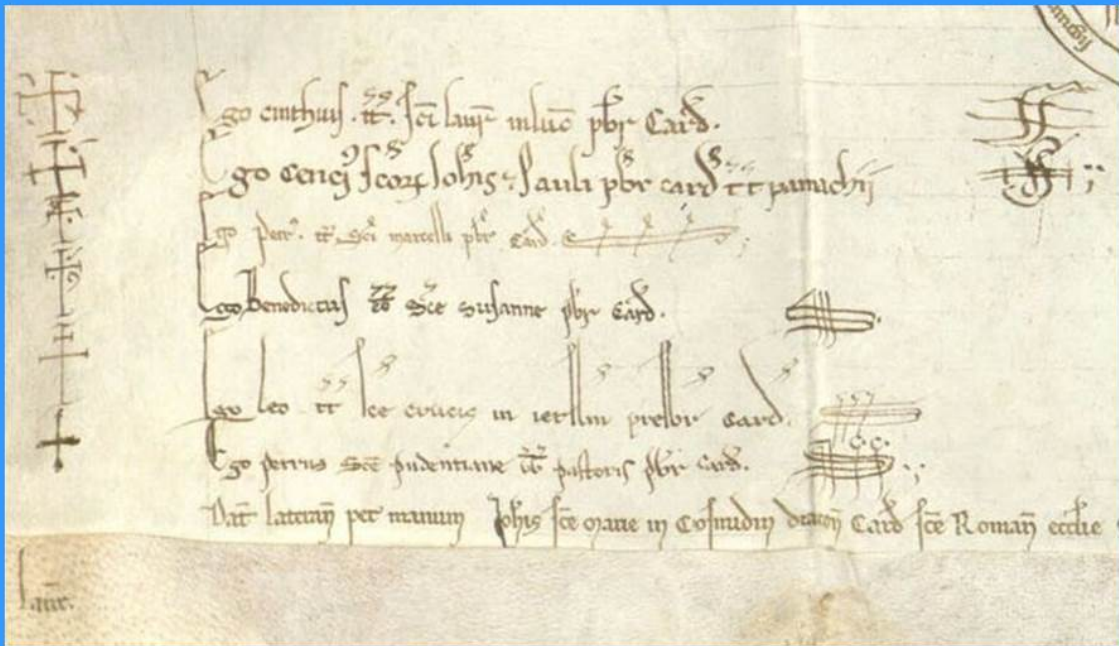 Ego cinthius . tt . sci laur in luc pbr Card.
Ego cenci scor Iohis Pauli pbr card tt pamachii
Ego Petr . tt Sci marcelli pbr Card.
Ego Benedictus tt Sce Susanne pbr Card.
Ego Leo tt sce crucis in ierlm presbr Card.
Ego petrus Sce pudentiane tt pastoris pbr Card.
Dat lateran per manum Iohis sce marie in Cosmidin Card sce Roman ecclie